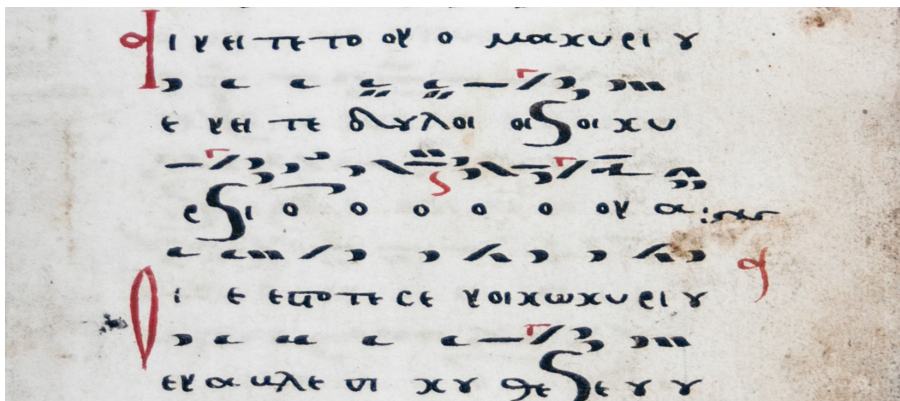 Αι νει τε το ον ο μα κυ ρι ου
ε νει τε δουλοι οι οι κυ
ρι ο ο ο ο ο ον
Οι ε εστο τε σε νοι κω κυ ρι ου
εν α υλε σι κου θε ε ου ου